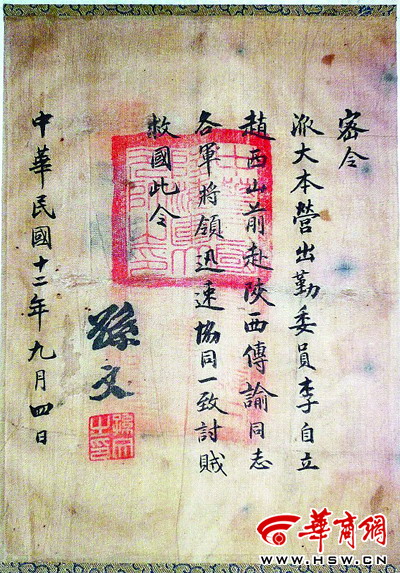 密令
派大本營出勤委員李自立
趙西山前赴陝西傳諭同志
各軍將領迅速協同一致討賊
救國此令
孫文
中華民國十二年九月四日
孫文之印
華商網
WWW.HSW.CN